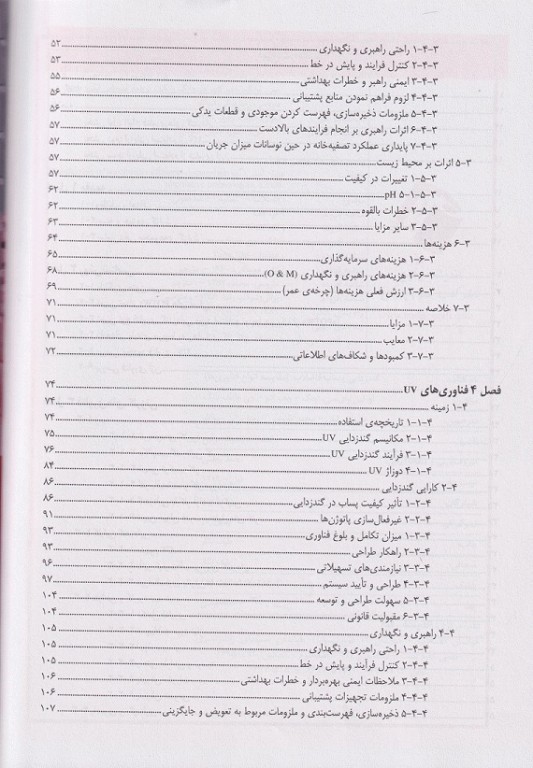 ۳-۴-۱ راحتی راهبری و نگهداری ۵۲
۳-۴-۲ کنترل فرایند و پایش در خط ۵۳
۳-۴-۳ ایمنی راهبر و خطرات بهداشتی ۵۵
۳-۴-۴ لزوم فراهم نمودن منابع پشتیبانی ۵۶
۳-۴-۵ ملزومات ذخیره‌سازی، فهرست کردن موجودی و قطعات یدکی ۵۶
۳-۴-۶ اثرات راهبری بر انجام فرایندهای بالادست ۵۷
۳-۴-۷ پایداری عملکرد تصفیه‌خانه در حین نوسانات میزان جریان ۵۷
۳-۵ اثرات بر محیط زیست ۵۷
۳-۵-۱ تغییرات در کیفیت ۵۷
۳-۵-۱-۵ pH ۶۲
۳-۵-۲ خطرات بالقوه ۶۲
۳-۵-۳ سایر مزایا ۶۳
۳-۶ هزینه‌ها ۶۴
۳-۶-۱ هزینه‌های سرمایه‌گذاری ۶۵
۳-۶-۲ هزینه‌های راهبری و نگهداری (O & M) ۶۸
۳-۶-۳ ارزش فعلی هزینه‌ها (چرخه‌ی عمر) ۶۹
۳-۷ خلاصه ۷۱
۳-۷-۱ مزایا ۷۱
۳-۷-۲ معایب ۷۱
۳-۷-۳ کمبودها و شکاف‌های اطلاعاتی ۷۲
فصل ۴ فناوری‌های UV ۷۴
۴-۱ زمینه ۷۴
۴-۱-۱ تاریخچه‌ی استفاده ۷۴
۴-۱-۲ مکانیسم گندزدایی UV ۷۵
۴-۱-۳ فرآیند گندزدایی UV ۷۶
۴-۱-۴ دوزاژ UV ۸۴
۴-۲ کارایی گندزدایی ۸۶
۴-۲-۱ تأثیر کیفیت پساب در گندزدایی ۸۶
۴-۲-۲ غیرفعال‌سازی پاتوژن‌ها ۹۱
۴-۳-۱ میزان تکامل و بلوغ فناوری ۹۳
۴-۳-۲ راهکار طراحی ۹۳
۴-۳-۳ نیازمندی‌های تسهیلاتی ۹۶
۴-۳-۴ طراحی و تأیید سیستم ۹۷
۴-۳-۵ سهولت طراحی و توسعه ۱۰۴
۴-۳-۶ مقبولیت قانونی ۱۰۴
۴-۴ راهبری و نگهداری ۱۰۵
۴-۴-۱ راحتی راهبری و نگهداری ۱۰۵
۴-۴-۲ کنترل فرآیند و پایش در خط ۱۰۵
۴-۴-۳ ملاحظات ایمنی بهره‌بردار و خطرات بهداشتی ۱۰۶
۴-۴-۴ ملزومات تجهیزات پشتیبانی ۱۰۶
۴-۴-۵ ذخیره‌سازی، فهرست‌بندی و ملزومات مربوط به تعویض و جایگزینی ۱۰۷